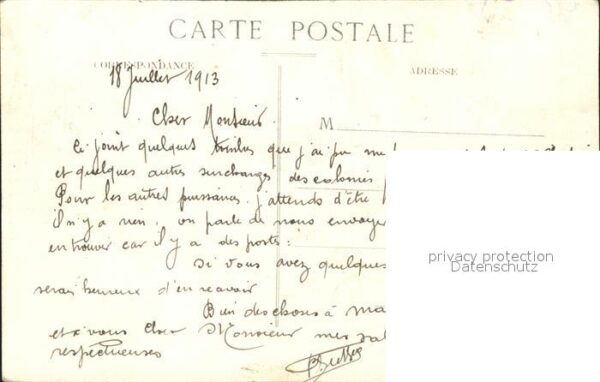 CARTE POSTALE
CORRESPONDANCE
ADRESSE
18 Juillet 1913
Cher Monsieur
M
Ci joint quelques timbres que j'ai pu me
et quelques autres surcharges des colonies
Pour les autres puissances, j'attends d'être
il n'y a rien. on parle de nous envoyer
en trouver car il y a des postes:
Si vous avez quelques
serai heureux d'en recevoir
Bien des choses à Ma
et à vous Cher Monsieur mes sal
respectueuses
privacy protection
Datenschutz